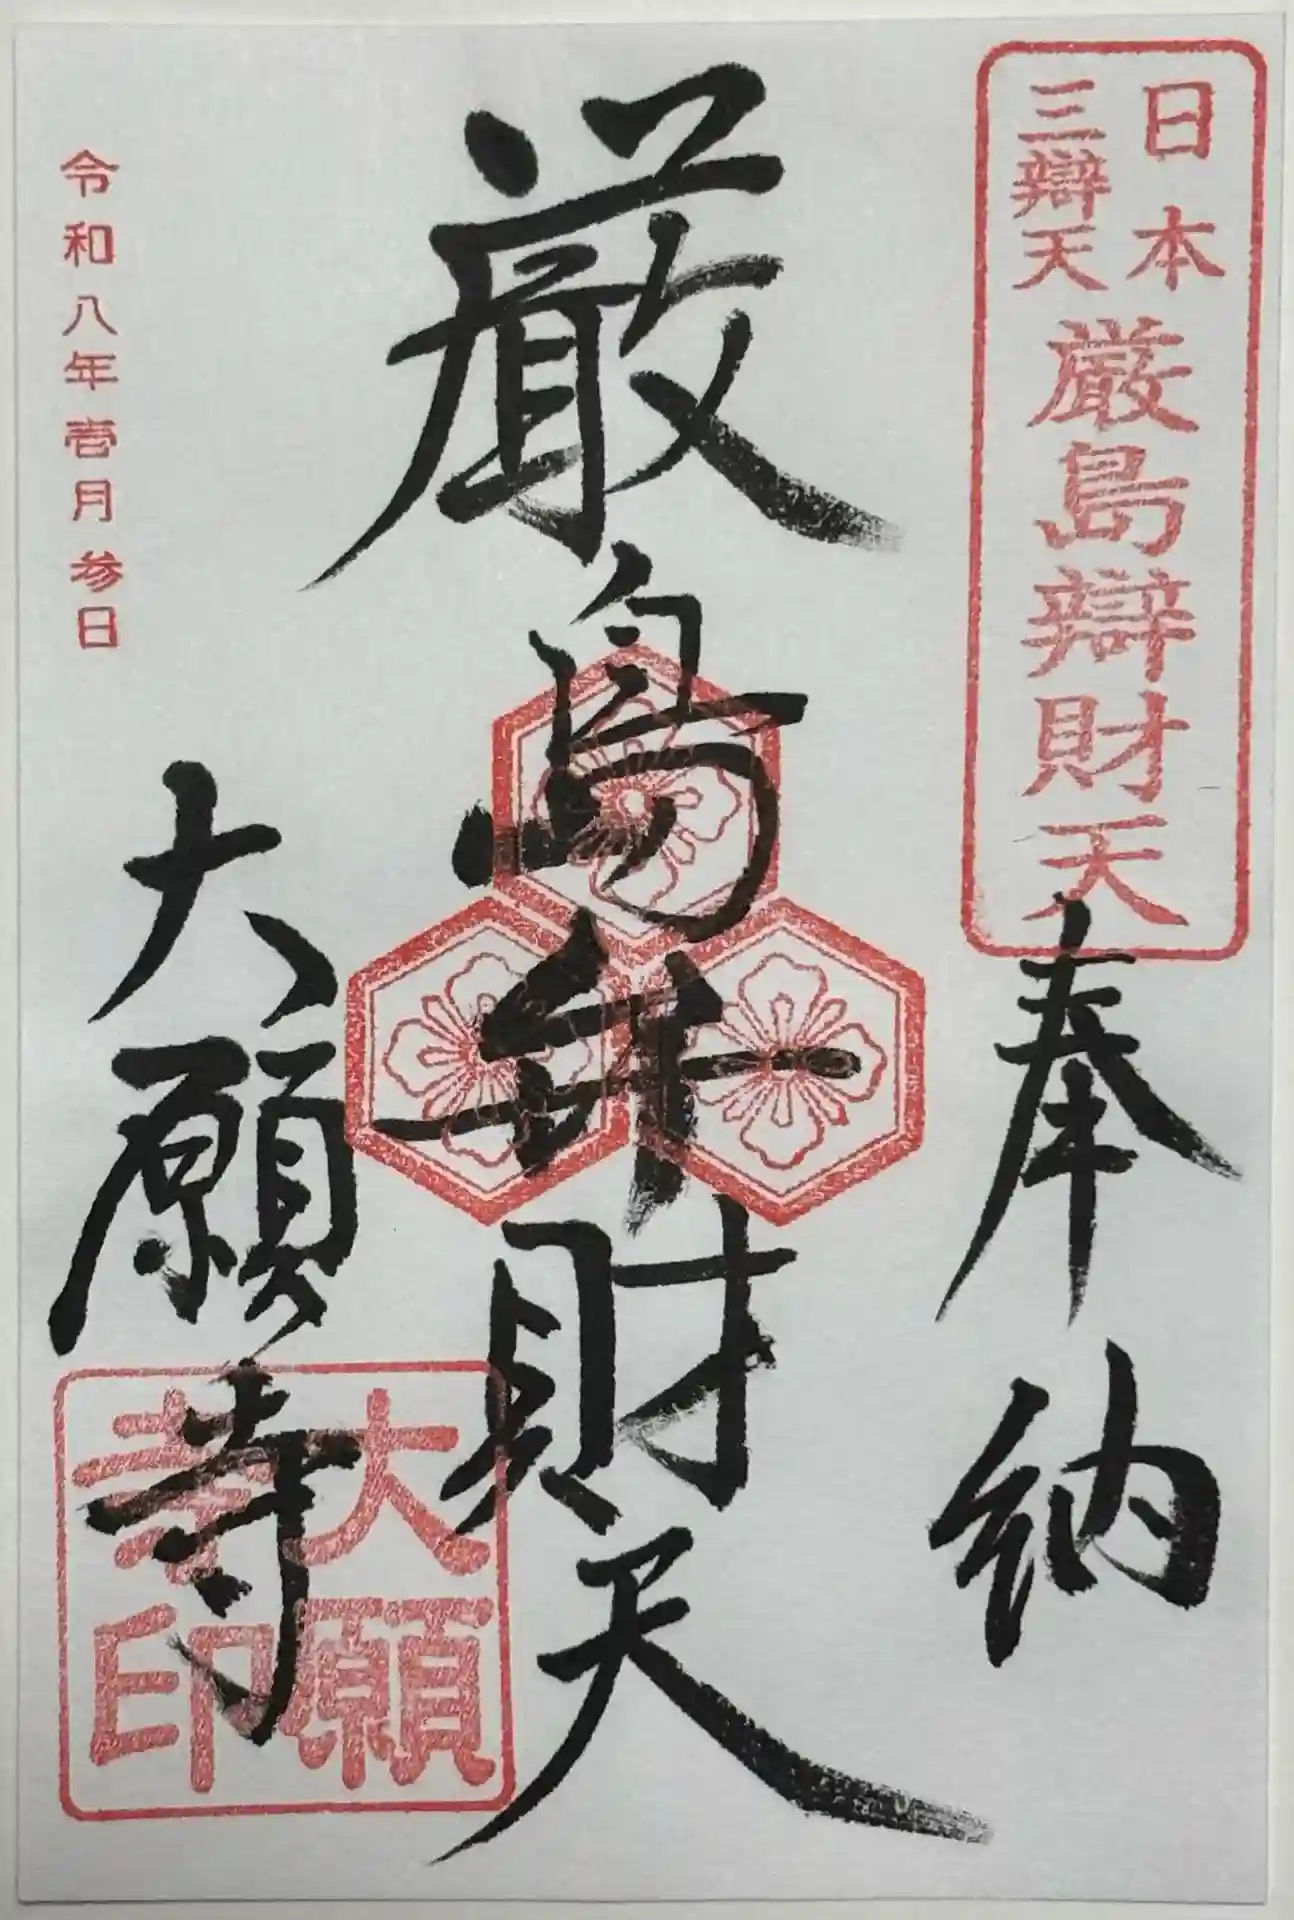 日本
三辯天
厳島辯財天
奉納
厳島弁財天
令和八年壱月参日
大願寺
大願
寺印